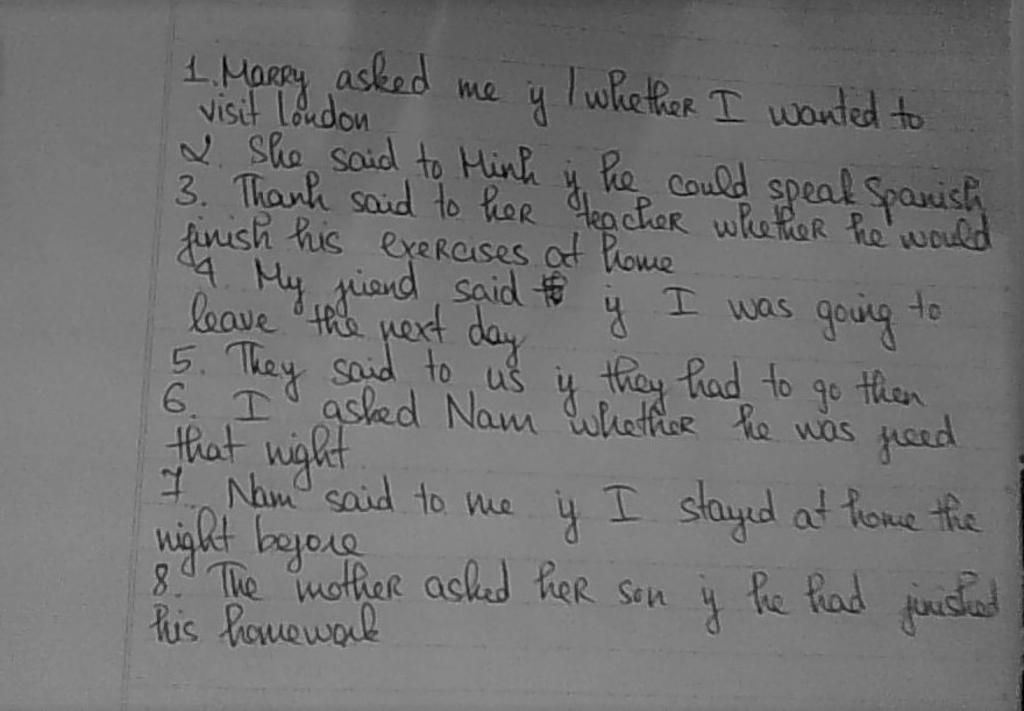 1. Marry asked me if / whether I wanted to
visit london
2. She said to Minh if he could speak Spanish
3. Thanh said to her teacher whether he would
finish his exercises at home
4. My friend said if I was going to
leave the next day
5. They said to us if they had to go then
6. I asked Nam whether he was freed
that night
7. Nam said to me if I stayed at home the
night before
8. The mother asked her son if he had finished
his homework